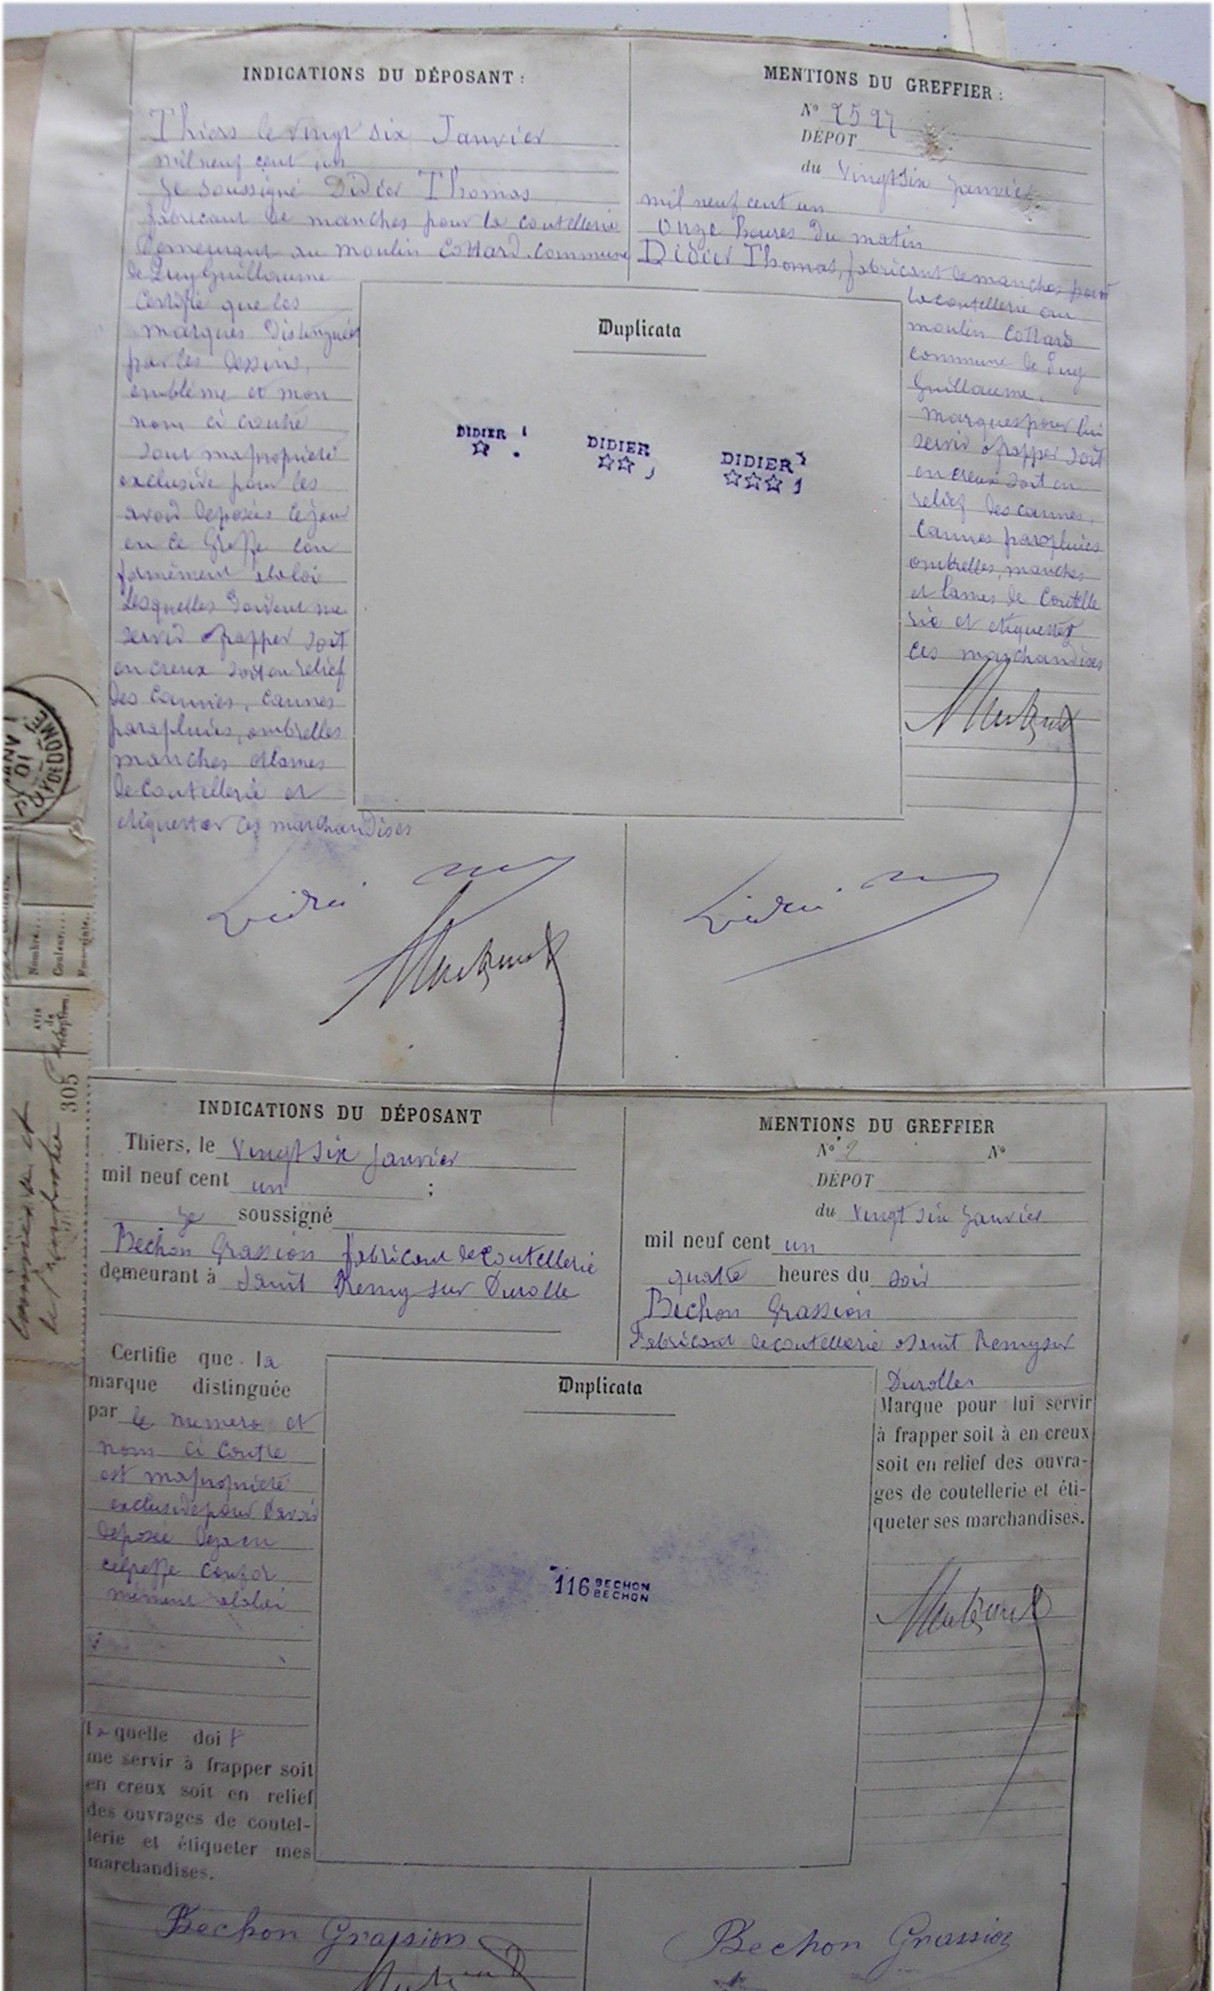 INDICATIONS DU DÉPOSANT :
Thiers le vingt six Janvier
mil neuf cent un
Je soussigné Didier Thomas
fabricant de manches pour la coutellerie
demeurant au moulin Cottard commune
de Puy Guillaume
Certifie que les
marques distinguées
par les dessins,
emblème et mon
nom ci contre
sont ma propriété
exclusive pour les
avoir déposées ce jour
en ce Greffe con
formément à la loi
Lesquelles doivent me
servir à frapper soit
en creux soit en relief
des cannes, cannes
parapluies, ombrelles
manches et lames
de coutellerie et
étiqueter ces marchandises
MENTIONS DU GREFFIER :
N° 2597
DÉPOT
du vingt six Janvier
mil neuf cent un
onze heures du matin
Didier Thomas, fabricant de manches pour
la coutellerie au
moulin Cottard
commune de Puy
Guillaume.
Marques pour lui
servir à frapper soit
en creux soit en
relief des cannes,
cannes parapluies
ombrelles, manches
et lames de coutelle
rie et étiqueter
ces marchandises
Duplicata
DIDIER
☆
DIDIER
☆☆
DIDIER
☆☆☆
Didier
Didier
PUY-DE-DÔME
Nombre...
Couleur...
AVIS
de
réception.
305
INDICATIONS DU DÉPOSANT
Thiers, le vingt six Janvier
mil neuf cent un ;
Je soussigné
Bechon Grassion fabricant de coutellerie
demeurant à Saint Remy sur Durolle
Certifie que la
marque distinguée
par le numero et
nom ci contre
est ma propriété
exclusive pour l'avoir
déposée
ce greffe confor
mément à la loi
Laquelle doit
me servir à frapper soit
en creux soit en relief
des ouvrages de coutel-
lerie et étiqueter mes
marchandises.
MENTIONS DU GREFFIER
N° 2 N°
DÉPOT
du vingt six Janvier
mil neuf cent un
quatre heures du soir
Bechon Grassion
Fabricant de coutellerie à Saint Remy sur
Durolles
Marque pour lui servir
à frapper soit à en creux
soit en relief des ouvra-
ges de coutellerie et éti-
queter ses marchandises.
Duplicata
116 BECHON
BECHON
Bechon Grassion
Bechon Grassion